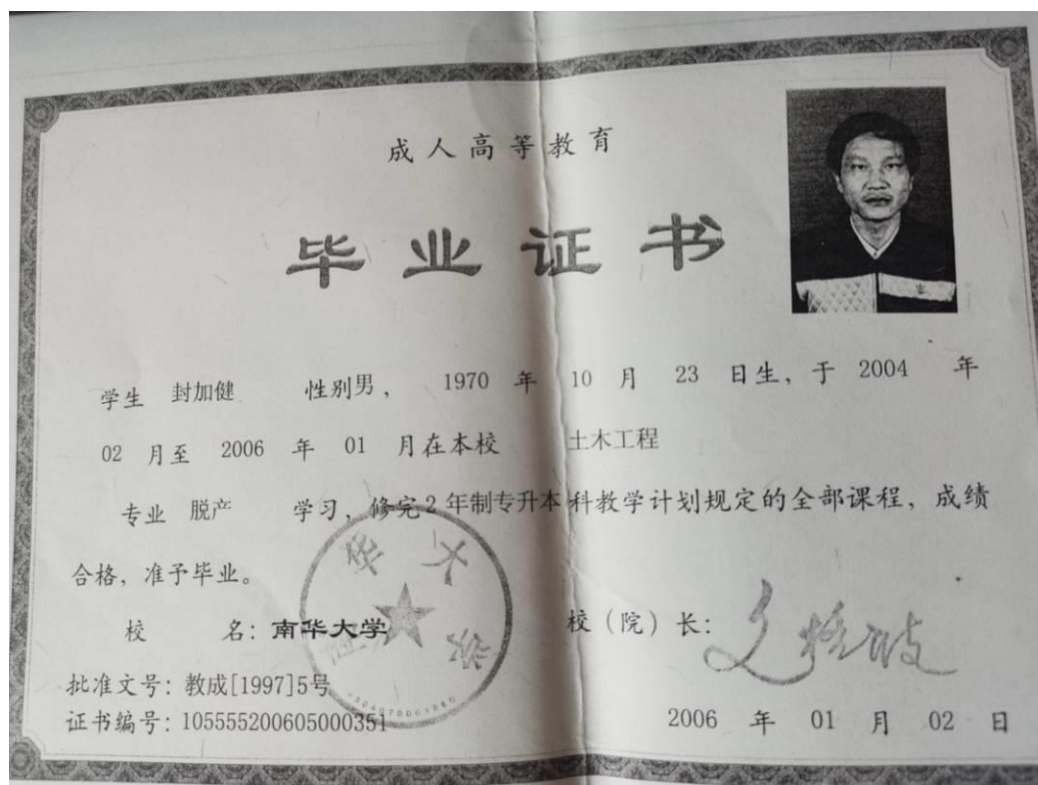 成人高等教育
毕业证书
学生 封加健 性别男， 1970 年 10 月 23 日生，于 2004 年
02 月至 2006 年 01 月在本校 土木工程
专业 脱产 学习，修完2 年制专升本科教学计划规定的全部课程，成绩
合格，准予毕业。
校 名：南华大学 校（院）长：
批准文号：教成[1997]5号
证书编号：105555200605000351
2006 年 01 月 02 日